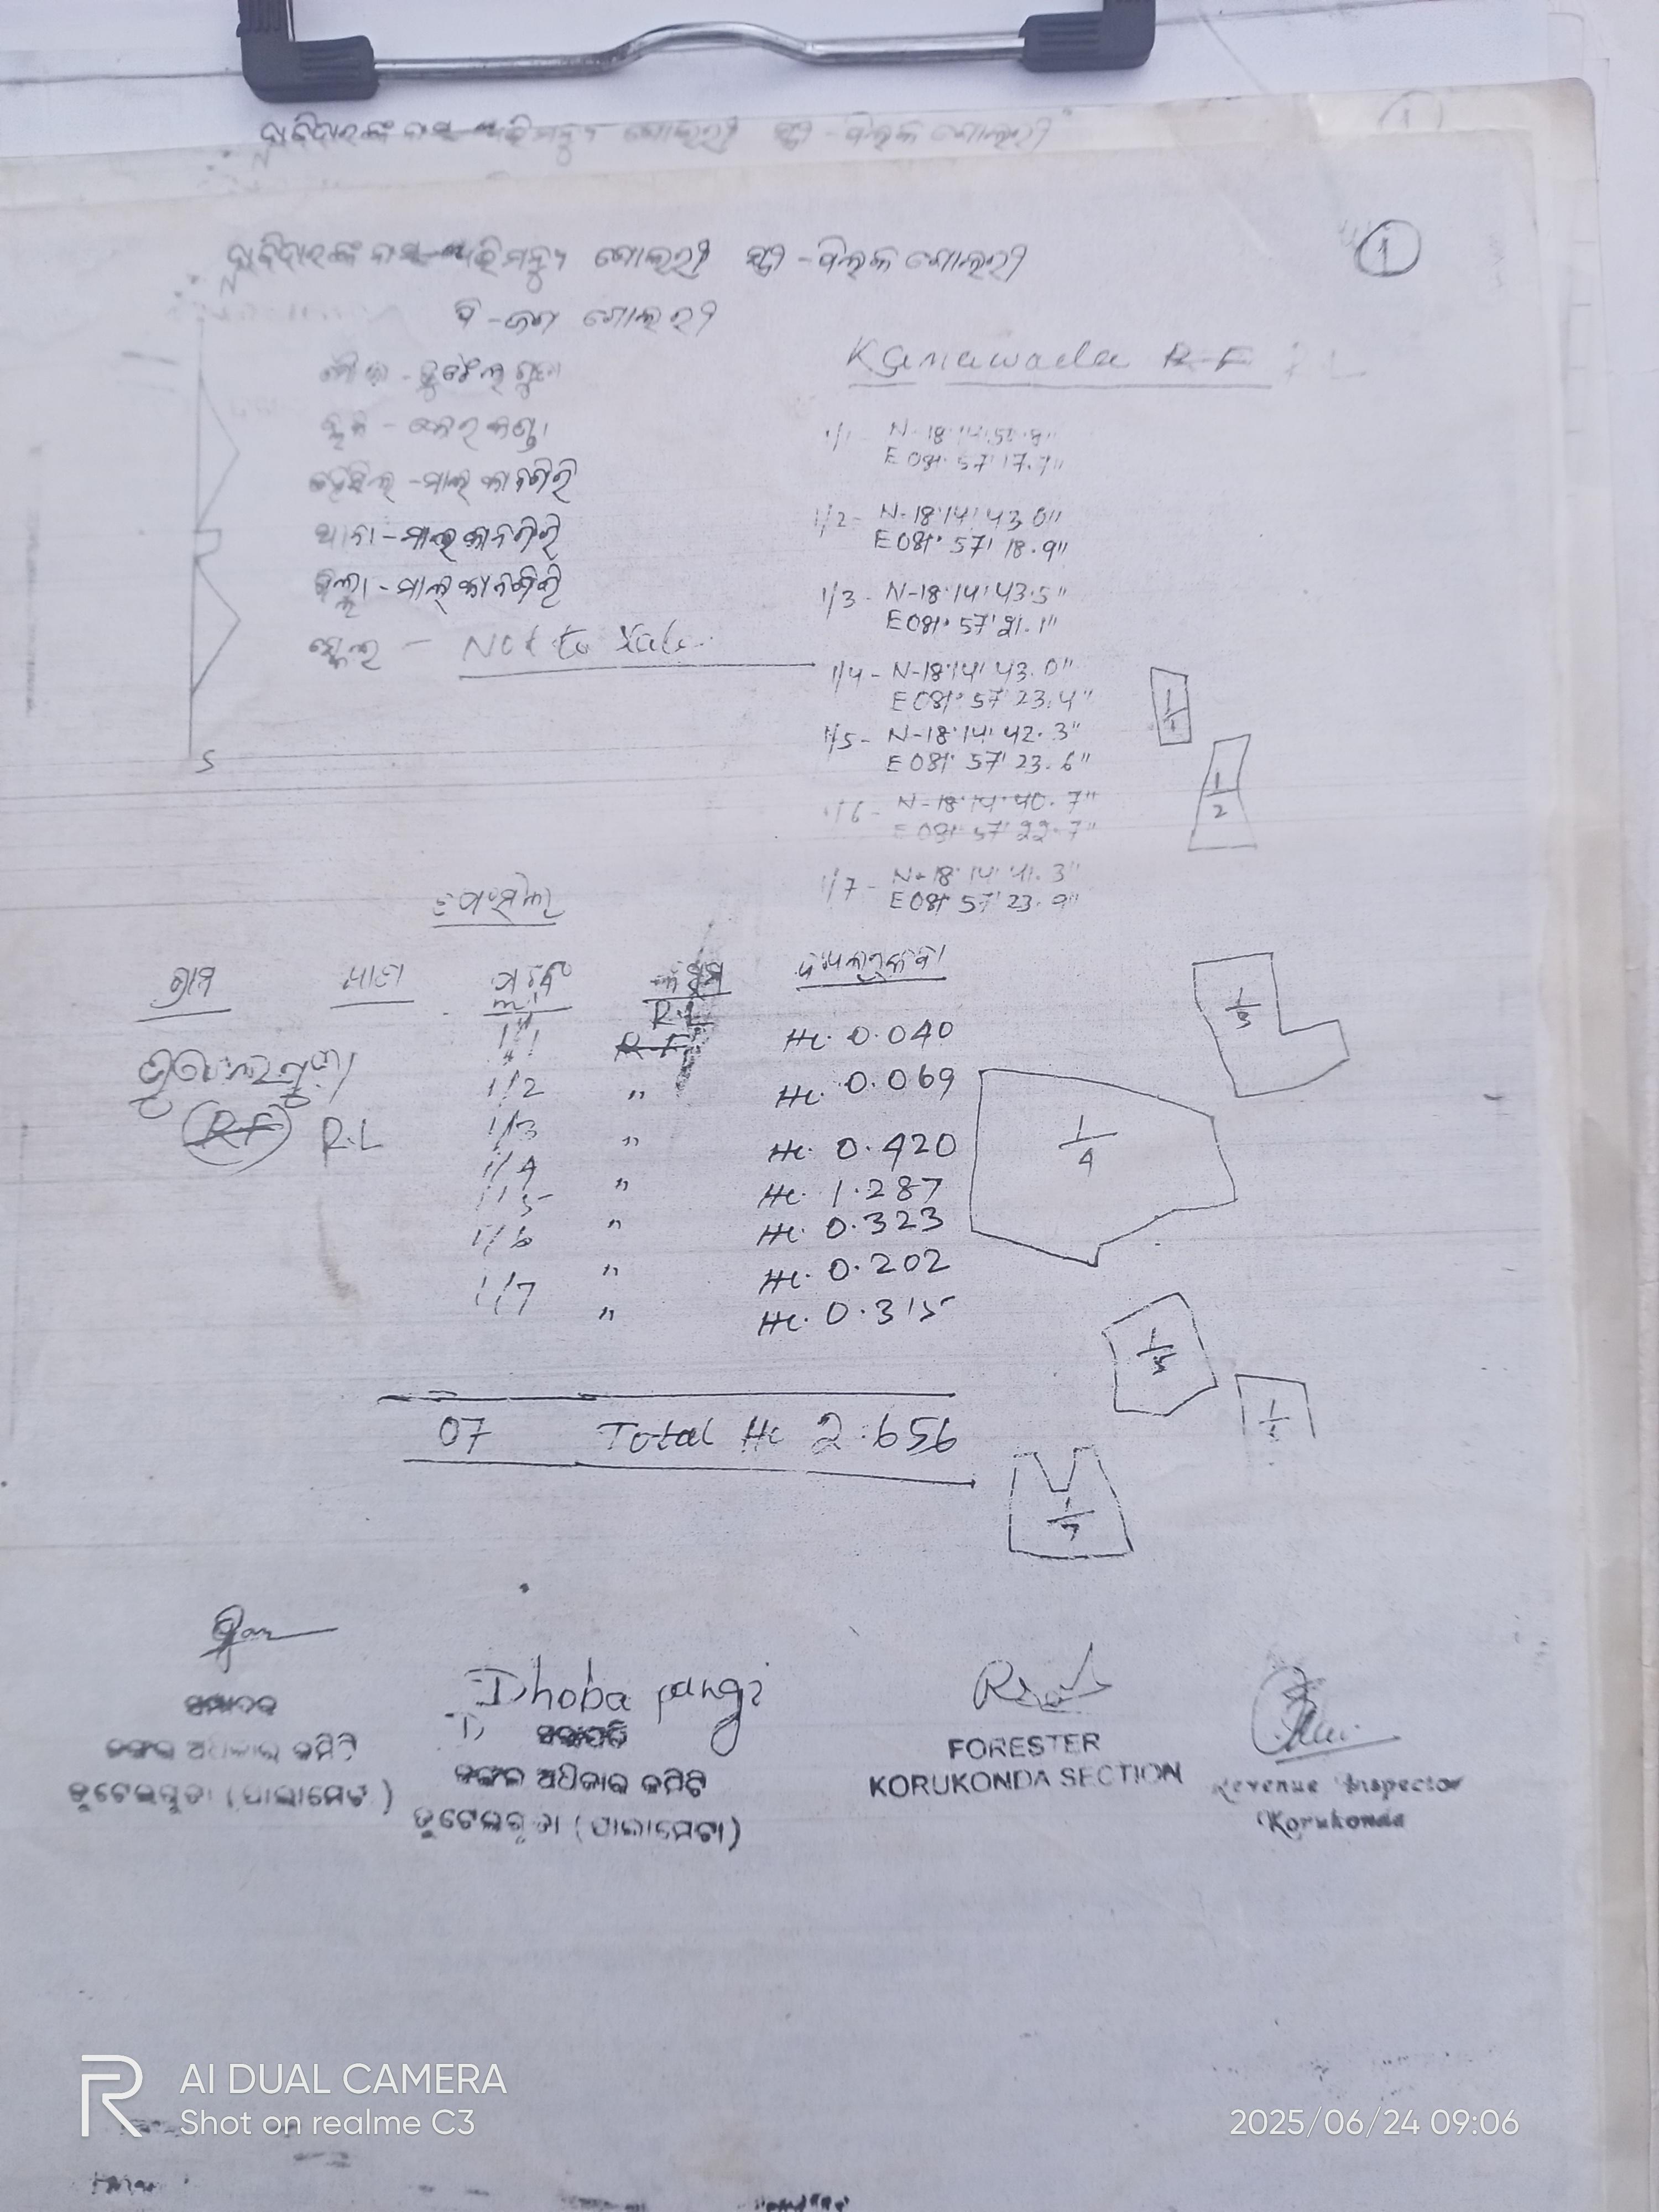 ଦାବିଦାରଙ୍କ ନାମ-ଅଭିମନ୍ୟୁ ଗୋଲରୀ ସ୍ତ୍ରୀ - ତିଲକ ଗୋଲରୀ
1
ଦାବିଦାରଙ୍କ ନାମ-ଅଭିମନ୍ୟୁ ଗୋଲରୀ ସ୍ତ୍ରୀ - ତିଲକ ଗୋଲରୀ
1
ପି - ଜଗ ଗୋଲରୀ
N
Kanawada R.F R L
ମୌଜା -
ବ୍ଲକ - କୋରକଣ୍ଡା
ତହସିଲ - ମାଲକାନଗିରି
ଥାନା - ମାଲକାନଗିରି
ଜିଲ୍ଲା - ମାଲକାନଗିରି
ସ୍କେଲ - Not to Scale
S
1/1 - N-18°14'50.8"
E 081° 57' 17.7"
1/2 - N-18°14' 43.0"
E 081° 57' 18.9"
1/3 - N-18°14' 43.5"
E 081° 57' 21.1"
1/4 - N-18°14' 43.0"
E 081° 57' 23.4"
1/5 - N-18°14' 42.3"
E 081° 57' 23.6"
1/6 - N-18°14' 40.7"
E 081° 57' 22.7"
1/7 - N-18°14' 41.3"
E 081° 57' 23.9"
1/1
1/2
1/3
1/4
1/5
1/7
ଗ୍ରାମ
R.L
1/1 R.F Hc. 0.040
1/2 " Hc. 0.069
R.F R.L
1/3 " Hc. 0.420
1/4 " Hc. 1.287
1/5 " Hc. 0.323
1/6 " Hc. 0.202
1/7 " Hc. 0.315
07 Total Hc 2.656
Dhoba pangi
ସଭାପତି
ଜଙ୍ଗଲ ଅଧିକାର କମିଟି
ଜଙ୍ଗଲ ଅଧିକାର କମିଟି
ତୁଟେଇଗୁଡା (ପାଲାମେଟା)
ତୁଟେଇଗୁଡା (ପାଲାମେଟା)
FORESTER
KORUKONDA SECTION
Revenue Inspector
Korukonda
AI DUAL CAMERA
Shot on realme C3
2025/06/24 09:06